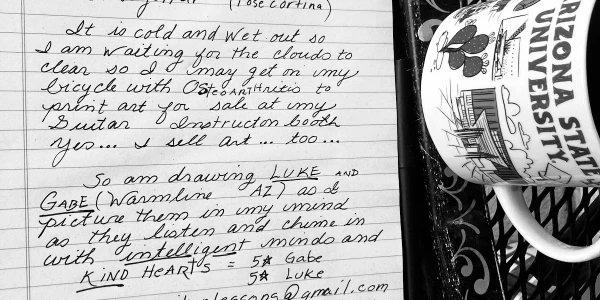 (Jose Cortina)
It is cold and wet out so
I am waiting for the clouds to
clear so I may get on my
bicycle with OsteoARTHritis to
print art for sale at my
Guitar Instructon booth
yes... I sell art ... too...
So am drawing LUKE AND
GABE (Warmline AZ) as I
picture them in my mind
as they listen and chime in
with intelligent minds and
KIND HeARTS = 5☆ Gabe
5☆ Luke
@gmail.com
ARIZONA STATE
UNIVERSITY